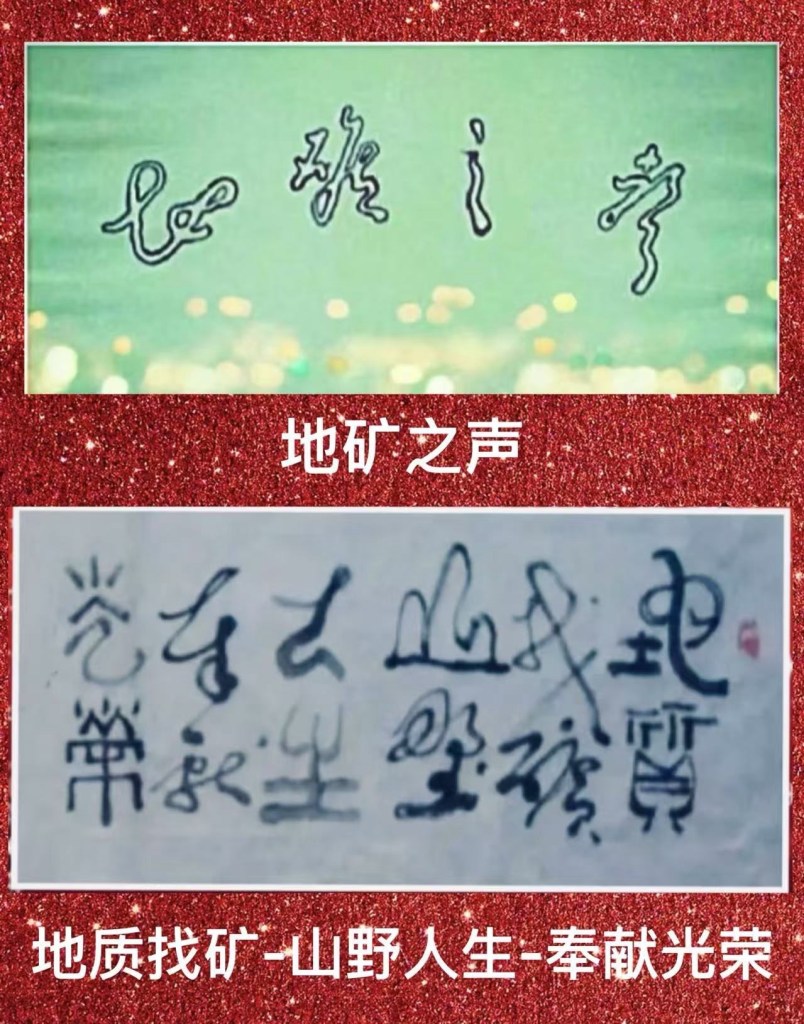 地矿之声
地矿之声
地质
找矿
山野
人生
奉献
光荣
地质找矿-山野人生-奉献光荣